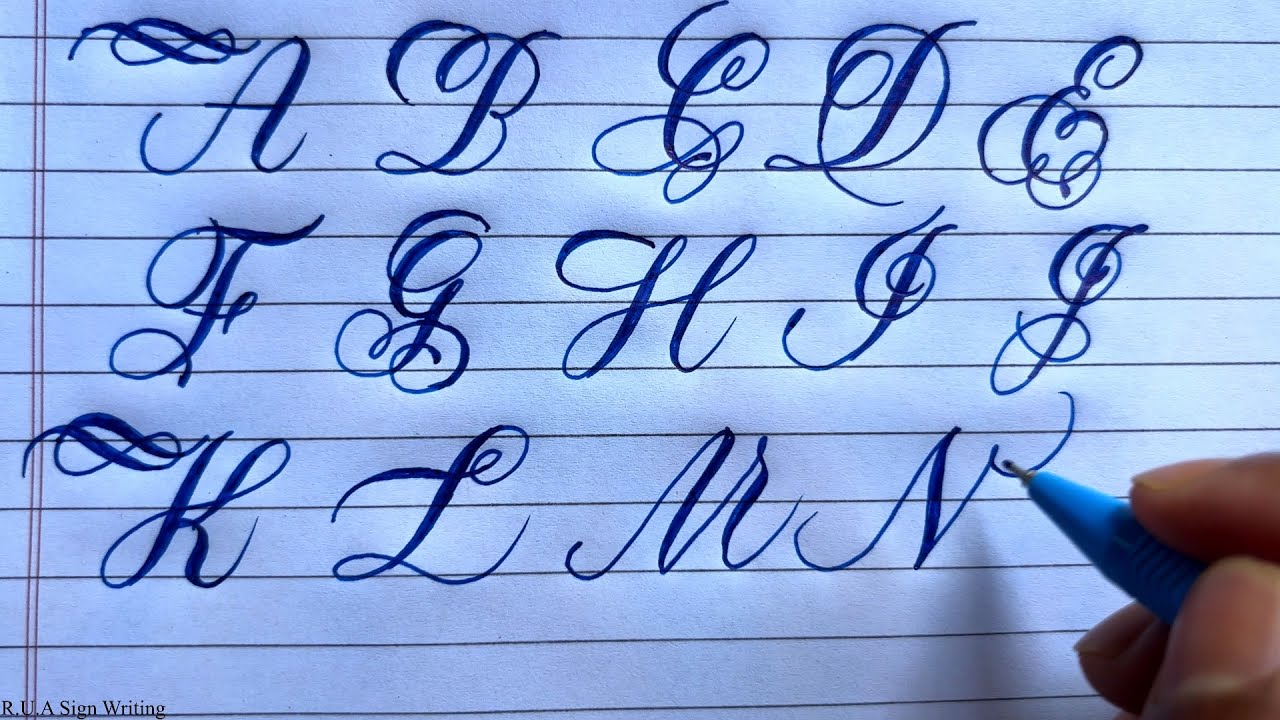 A B C D E
F G H I J
K L M N
R.U.A Sign Writing